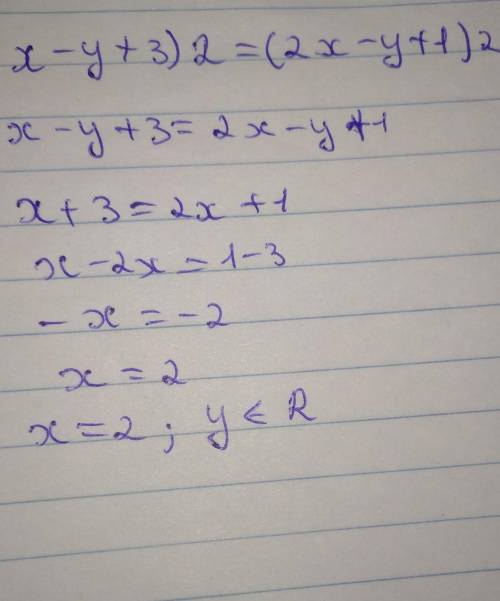 x-y+3)2=(2x-y+1)2
x-y+3=2x-y+1
x+3=2x+1
x-2x=1-3
-x=-2
x=2
x=2; y∈R